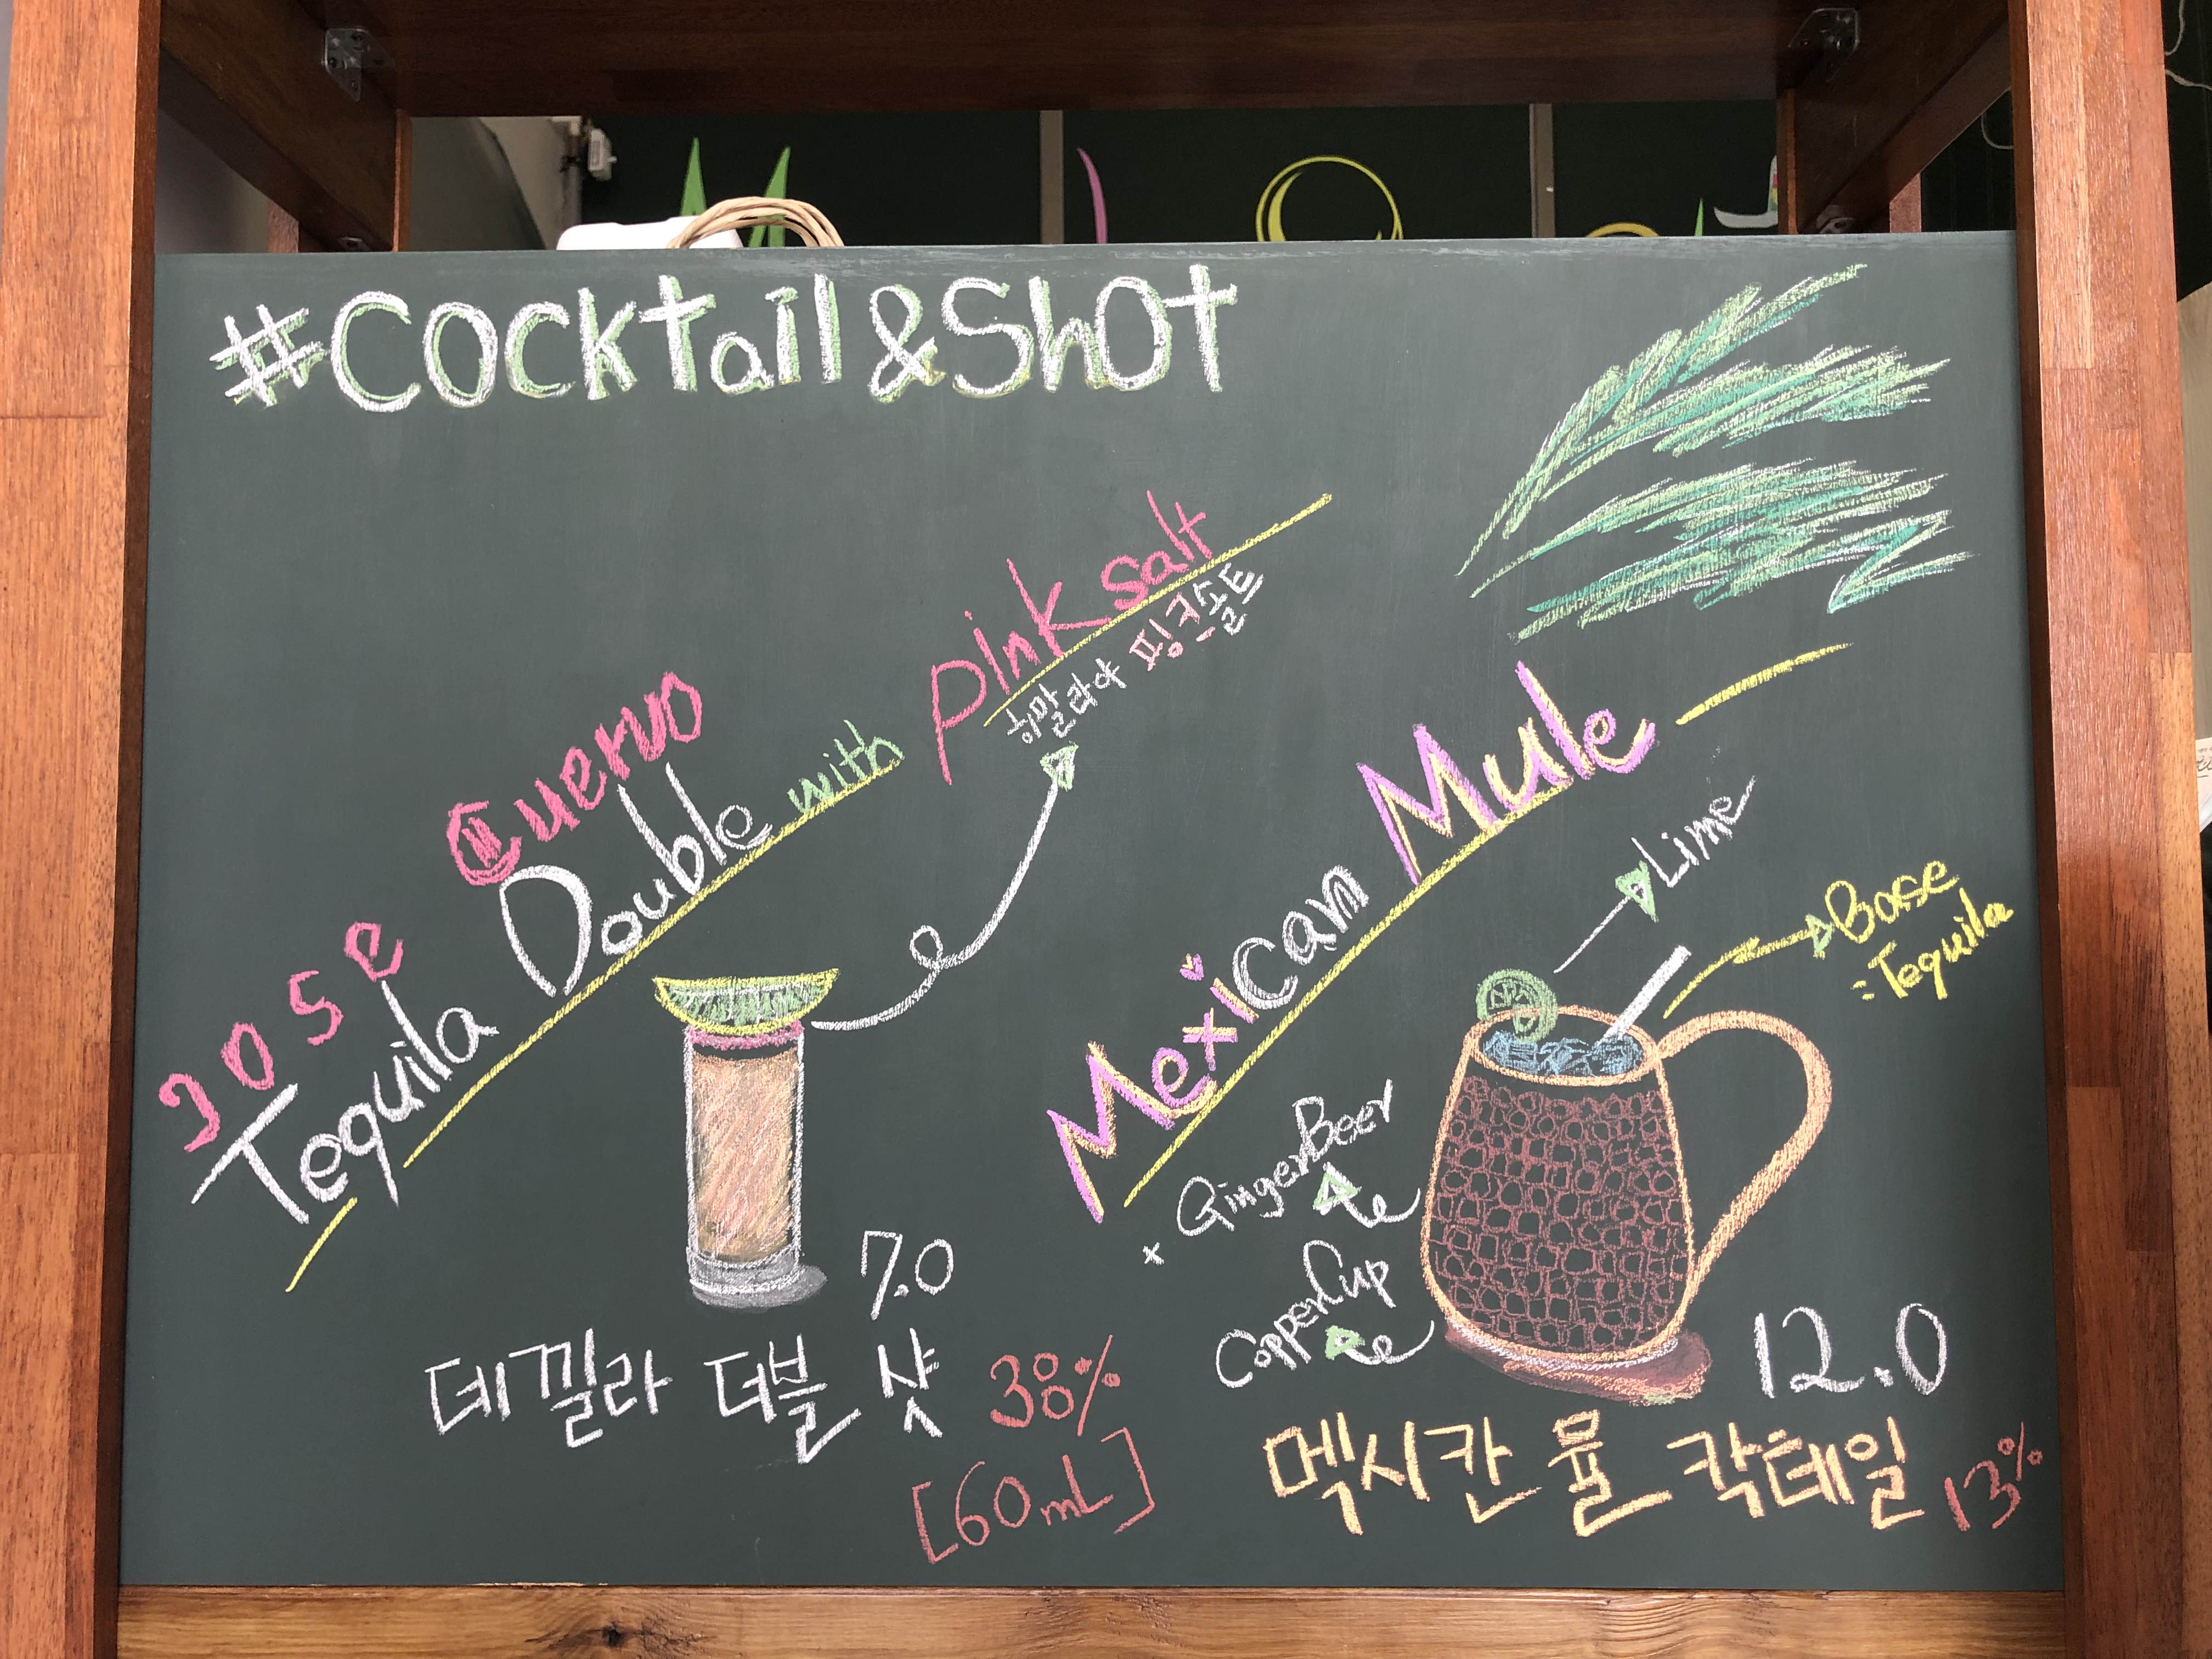 #Cocktail&Shot
Jose Cuervo
Tequila Double with Pink Salt
히말라야 핑크솔트
7.0
데낄라 더블 샷 38%
[60mL]
Mexican Mule
Lime
Base
=Tequila
+ GingerBeer
CopperCup
12.0
멕시칸 뮬 칵테일 13%